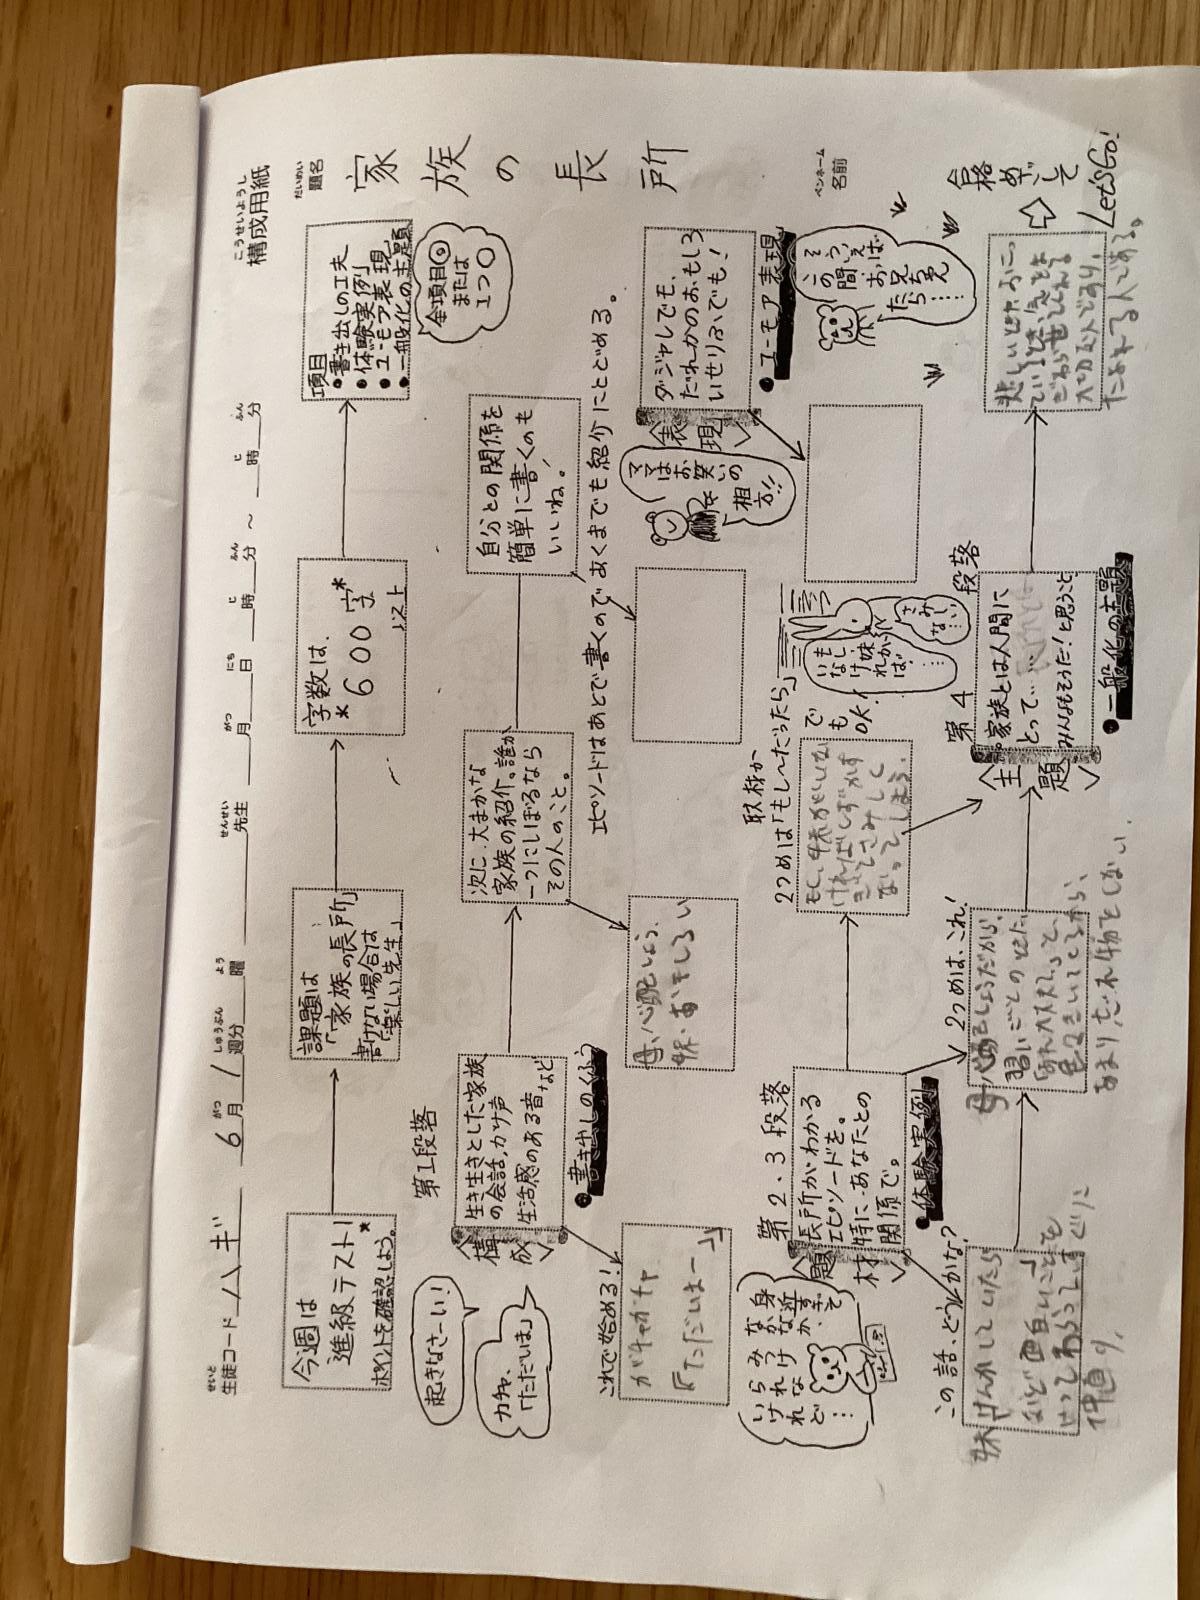 こうせいようし
構成用紙
せいと
生徒コード ハギ 6月 1週分 曜 先生 月 日 時 分 ～ 時 分
がつ しゅうぶん よう せんせい がつ にち と ふん と ふん
だいめい
題名
家族の長所
ペンネーム
名前
今週は
進級テスト！
ポイントを確認しよう。*
課題は
「家族の長所」
書けない場合は
「楽しい先生」
字数は、
*600字*
以上
項目
●書き出しの工夫
●体験実例
●ユーモア表現
●一般化の主題
全項目◎
または
1つ○
第1段落
起きなさーい！
カチャ、
「ただいま」
〈構成〉
生き生きとした家族
の会話、かけ声
生活感のある音など
●書き出しのくふう
次に、大まかな
家族の紹介。誰か
一つにしぼるなら
その人のこと。
自分との関係を
簡単に書くのも
いいね！
エピソードはあとで書くので、あくまでも紹介にとどめる。
これで始める！
ガチャガチャ
『ただいまー』
母、心配しょう、
妹、おもしろい
〈表現〉
ダジャレでも、
だれかのおもしろ
いせりふでも！
●ユーモア表現
ママは
お笑いの
相方！！
そういえば
この間
お兄ちゃん
たら……
第2、3段落
〈題材〉
長所がわかる
エピソードを。
特に、あなたとの
関係で。
●体験実例
身近すぎて
なかなか
みつけ
られない
けれど…
取材か
2つめは「もし～だったら」
でも
OK！
もし、妹がいな
ければしずかす
ぎてさみしく
なってしまう。
もしも
妹が
いなければ
……
さみしい…
この話、どうかな？
妹 けんかしていたら
など面白いことを
いってわらってすぐに
仲直り。
2つめは、これ！
母 心配しょうだから、
習いごとのときに、
「あれ入れた？」と、
色々きいてくるから、
あまりわすれ物をしない。
第4段落
〈主題〉
。家族とは人間に
とって……
みんなもそうだ！と思うこと
●一般化の主題
大切な人であり、
たよれる人である。
合格
めざして
Let'sGo!